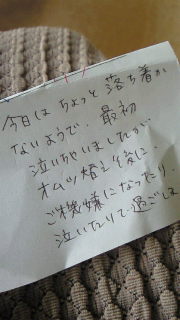 今日はちょっと落ち着か
ないようで、最初
泣いちゃいましたが
オムツ替え後に、
ご機嫌になったり、
泣いたりで過ごしま